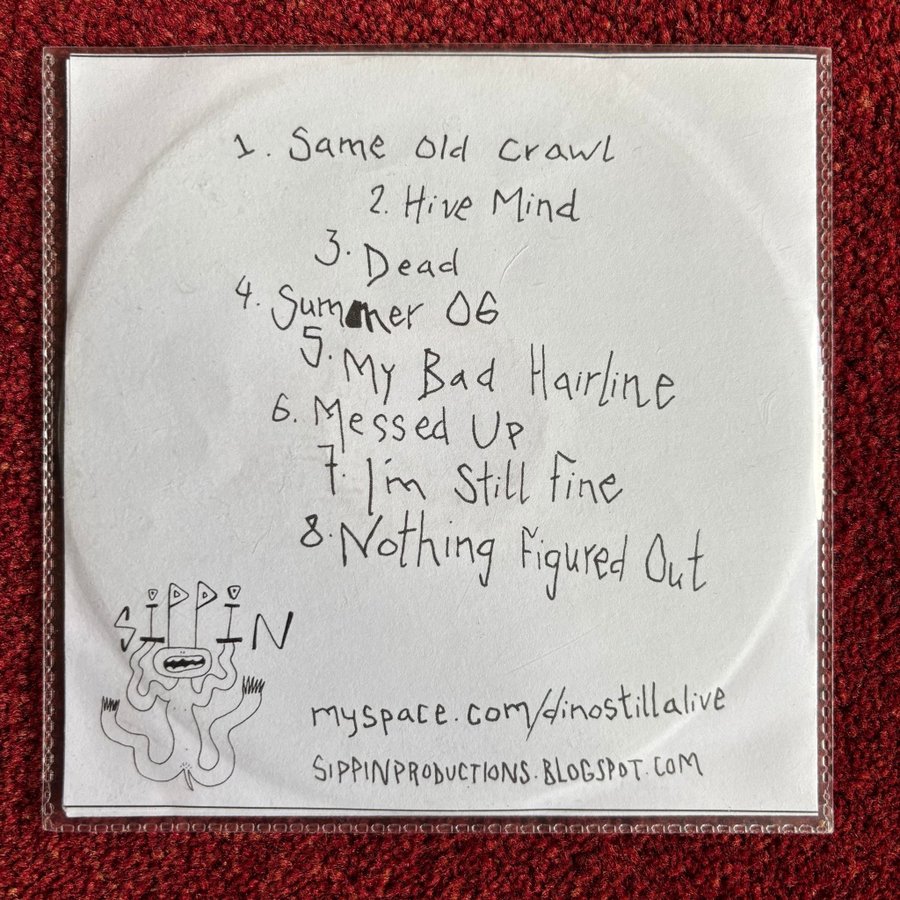 1. Same Old Crawl
2. Hive Mind
3. Dead
4. Summer 06
5. My Bad Hairline
6. Messed Up
7. I'm Still Fine
8. Nothing Figured Out
SIPPIN
myspace.com/dinostillalive
SIPPINPRODUCTIONS.BLOGSPOT.COM